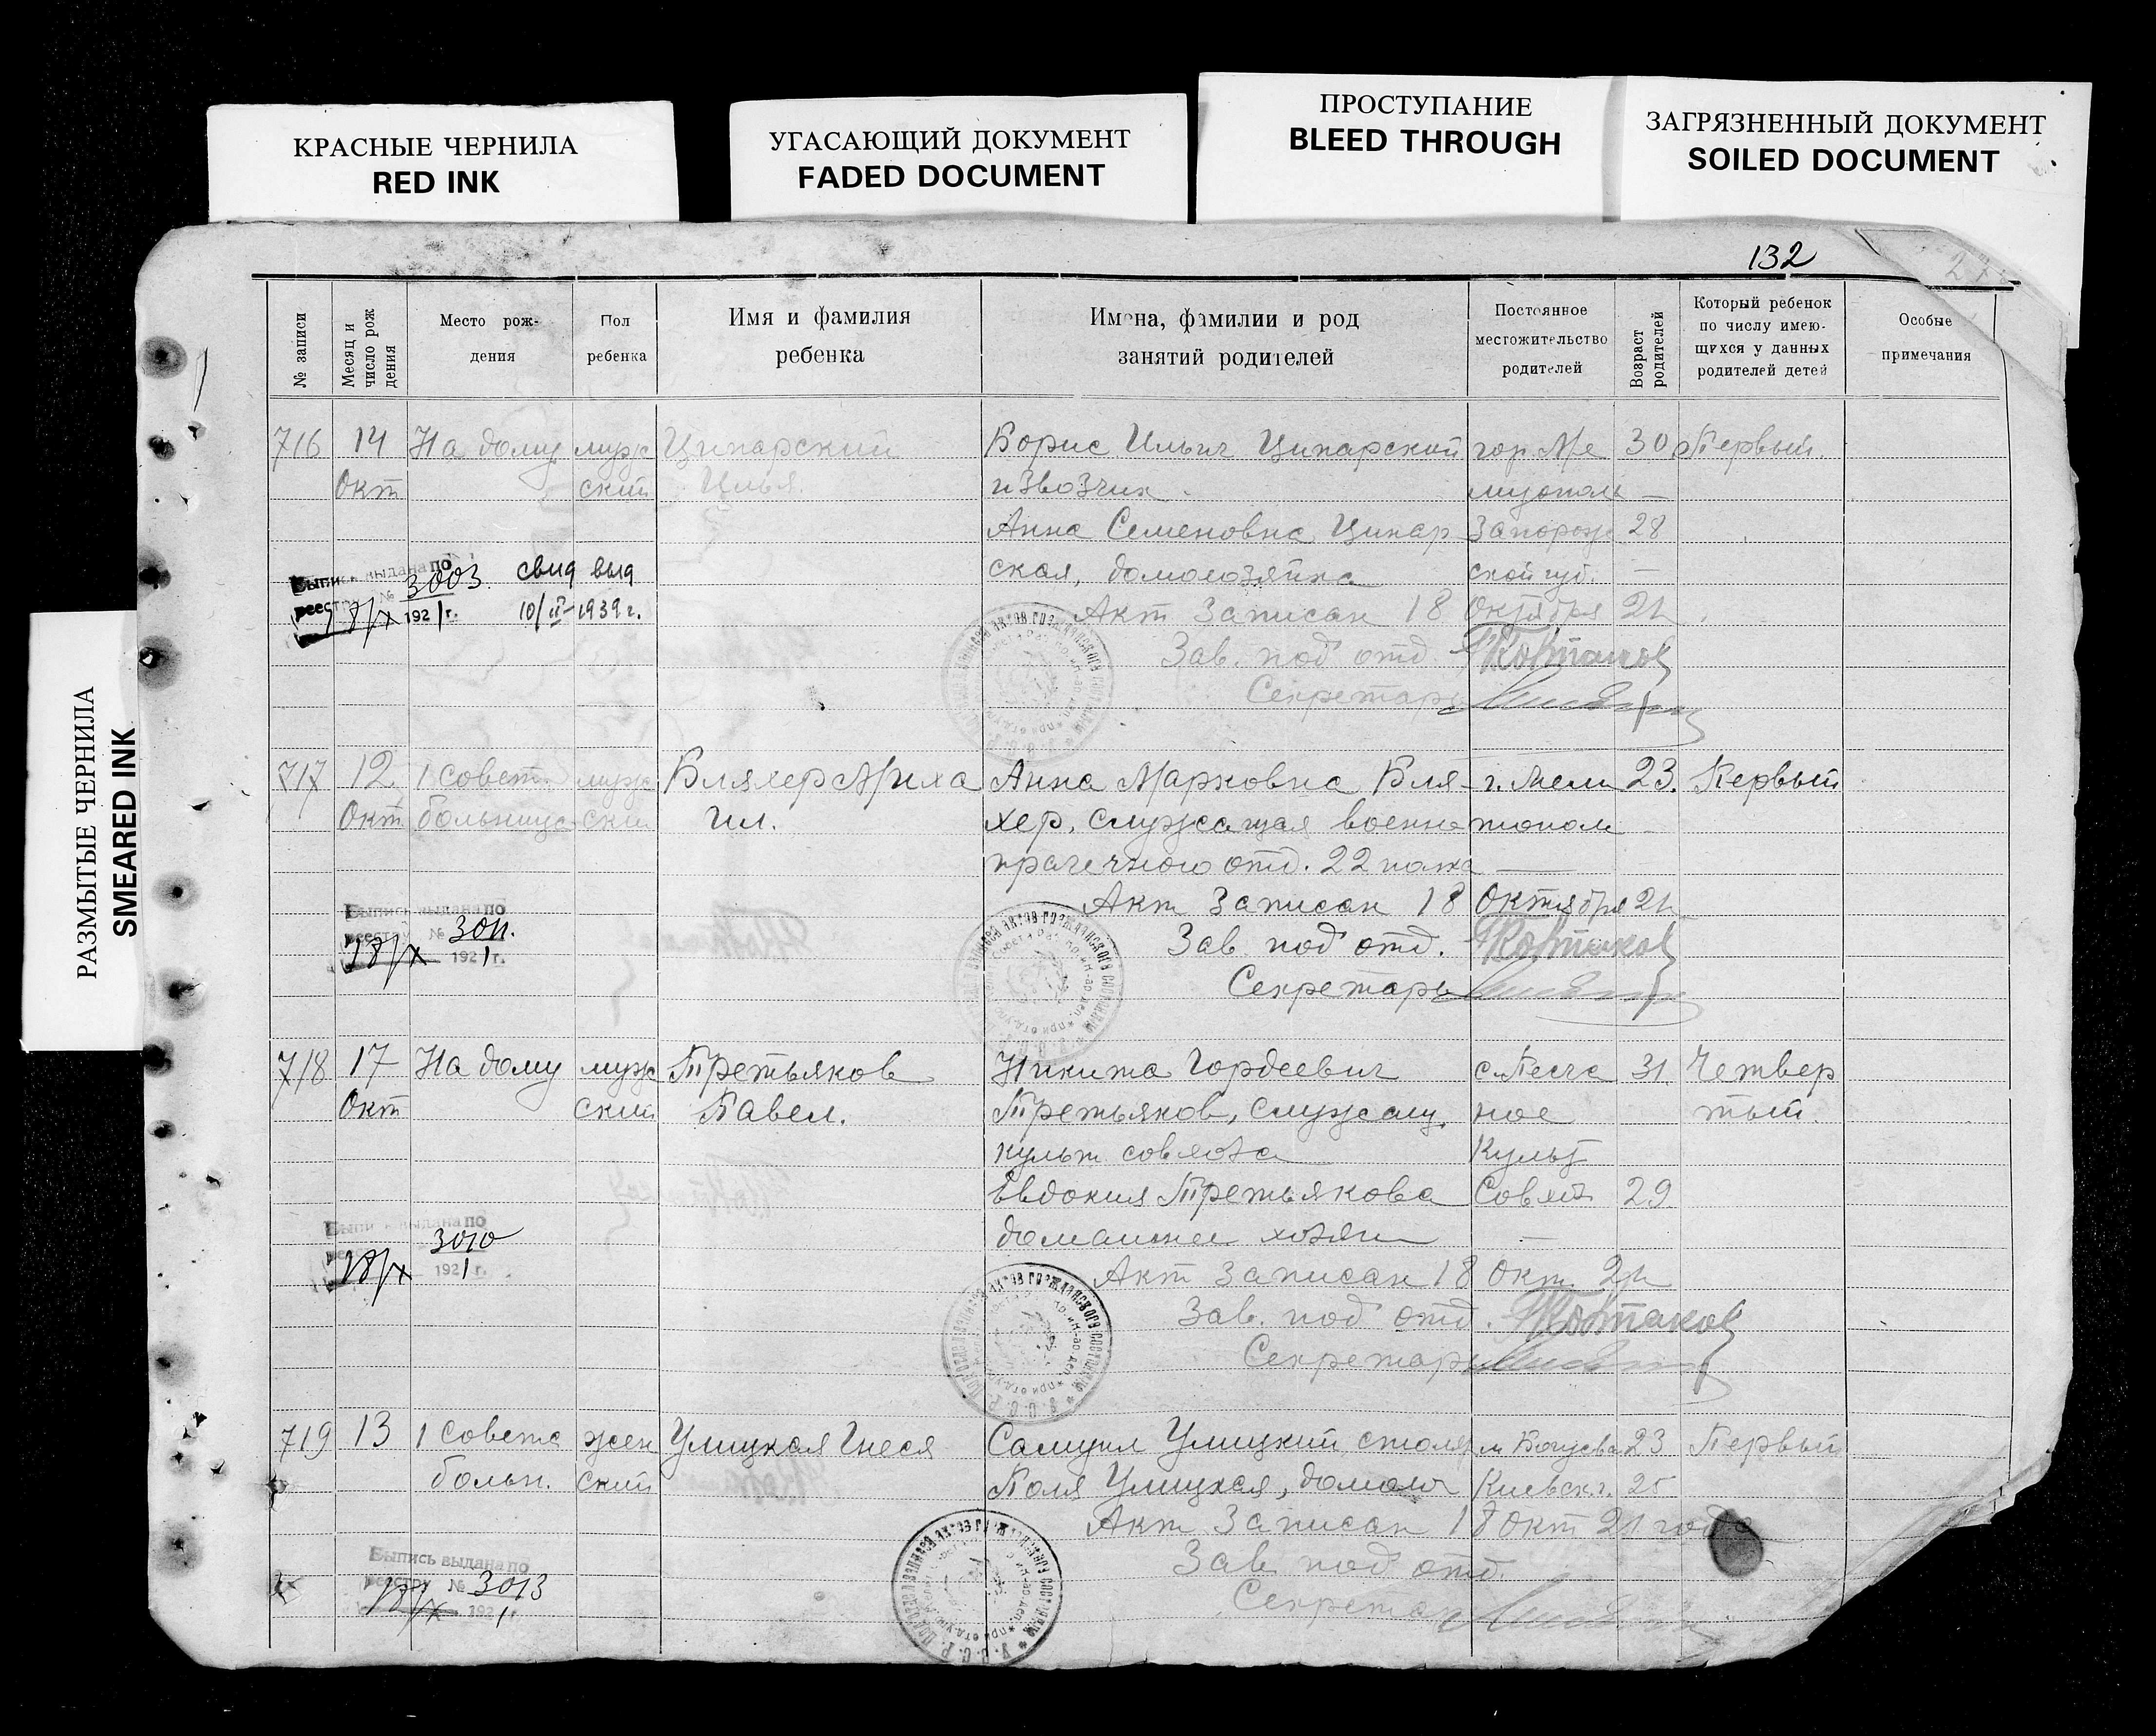 КРАСНЫЕ ЧЕРНИЛА
RED INK
УГАСАЮЩИЙ ДОКУМЕНТ
FADED DOCUMENT
ПРОСТУПАНИЕ
BLEED THROUGH
ЗАГРЯЗНЕННЫЙ ДОКУМЕНТ
SOILED DOCUMENT
РАЗМЫТЫЕ ЧЕРНИЛА
SMEARED INK
132
№ записи
Месяц и число рождения
Место рож-
дения
Пол
ребенка
Имя и фамилия
ребенка
Имена, фамилии и род
занятий родителей
Постоянное
местожительство
родителей
Возраст
родителей
Который ребенок
по числу имею-
щихся у данных
родителей детей
Особые
примечания
716 14 На дому муж Ципарский Борис Ильич Ципарский гор Ме 30 Первый.
Окт ский Илья извозчик
Анна Семеновна Ципар Запорож 28
ская, домохозяйка ской губ.
Выпись выдана по
реестру № 3003
18/X 1921 г.
свид выд
10/II-1939 г.
Акт записан 18 Октября 21
Зав. под отд.
Секретарь
717 12 1 совет. муж Бляхер Миха Анна Марковна Бля- г. Мели 23. Первый
Окт больница ский ил. хер, служащая военно тополь
прачечного отд. 22 полка
Акт записан 18 Октября 21
Выпись выдана по
реестру № 3011.
18/X 1921 г.
Зав. под отд.
Секретарь
718 17 На дому муж Третьяков Никита Гордеевич с. Песча 31. Четвер
Окт ский Павел. Третьяков, служащ. ное тый.
культ совхоза Культ
Евдокия Третьякова Совхоз 29
домашнее
Акт записан 18 Окт. 21
Выпись выдана по
3010
18/X 1921 г.
Зав. под отд.
Секретарь
719 13 1 Совета жен Улицкая Гнеся Самуил Улицкий, столяр 23 Первый
больн. ский Поля Улицкая, домохоз Киевск. г. 25
Акт записан 18 Окт 21 года
Выпись выдана по
реестру № 3013
18/X 1921 г.
Зав. под отд.
Секретарь